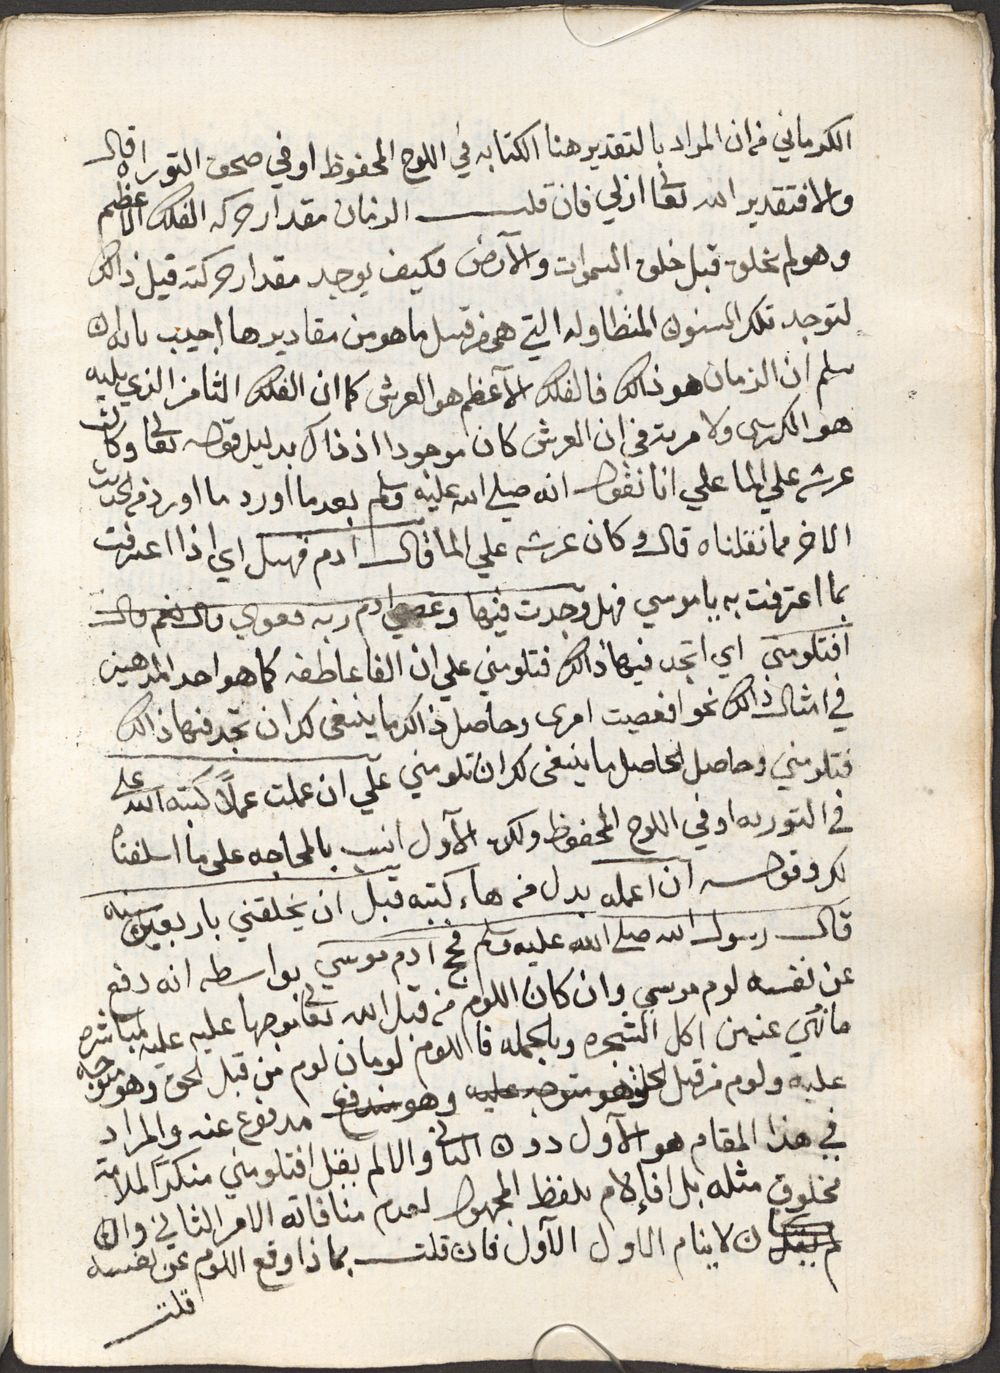 الكرماني فان المراد بالتقدير هنا الكتابه في اللوح المحفوظ او في صحف التوراه قال
والا فتقدير الله تعالى ازلي فان قلت الزمان مقدار حركه الفلك الاعظم
وهو لم يخلق قبل خلق السموات والارض فكيف يوجد مقدار حركته قبل ذالك
لتوجد تلك السنون المتطاوله التي هي من قبيل ما هو من مقاديرها اجيب بانه ان
سلم ان الزمان هو ذالك فالفلك الاعظم هو العرش كما ان الفلك الثامن الذي يليه
هو الكرسي ولا مرية في ان العرش كان موجودا اذ ذاك بدليل قوله تعالى وكان
عرشه علي الما علي انا نقول انه صلى الله عليه وسلم بعد ما اورد ما اورد في الحديث
الاخر مما نقلناه قال وكان عرشه علي الما قال ادم فهل اي اذا اعترفت
بما اعترفت به يا موسي فهل وجدت فيها وعصي ادم ربه فغوي قال نعم قال
افتلومني اي اتجد فيها ذالك فتلومني علي ان الفا عاطفه كما هو احد المذهبين
في امثال ذالك نحو افعصيت امري وحاصل ذالك ما ينبغي لك ان تجد فيها ذالك
فتلومني وحاصل الحاصل ما ينبغي لك ان تلومني علي ان عملت عملاً كتبه الله علي
في التوريه او في اللوح المحفوظ ولكن الآول انسب بالمحاجه على ما اسلفناه
لك وقوله ان اعمله بدل من هاء كتبه قبل ان يخلقني باربعين سنه
قال رسول الله صلى الله عليه وسلم فحج آدم موسي بواسطه انه دفع
عن نفسه لوم موسي وان كان اللوم من قبل الله تعالى متوجها عليه عليه لمباشره
ما نهي عنه من اكل الشجره وبالجمله فاللوم لومان لوم من قبل الحق وهو متوجه
عليه ولوم من قبل الخلق وهو متوجه عليه وهو مندفع مدفوع عنه والمراد
في هذا المقام هو الآول دون الثاني والا لم يقل افتلومني منكرًا لملامة
مخلوق مثله بل افإلام بلفظ المجهول لعدم منافاته الامر الثاني وان
كان لا ينام الاول الآول فان قلت بماذا وقع اللوم عن نفسه
قلت